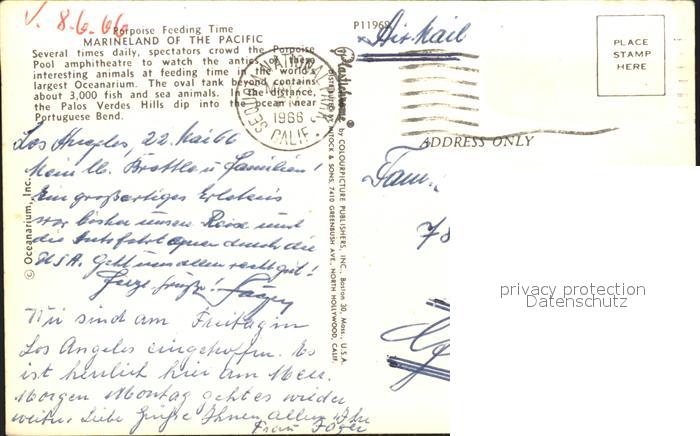 V. 8.6.66
Porpoise Feeding Time
MARINELAND OF THE PACIFIC
Several times daily, spectators crowd the Porpoise
Pool amphitheatre to watch the antics of these
interesting animals at feeding time in the world's
largest Oceanarium. The oval tank beyond contains
about 3,000 fish and sea animals. In the distance,
the Palos Verdes Hills dip into the ocean near
Portuguese Bend.
Los Angeles, 22. Mai 66
Mein lb. u Familien!
Ein großartiges Erlebnis
war bisher unsere Reise und
die Autofahrt quer durch die
USA. Geht uns allen recht gut!
Herzl. Grüße!
Wir sind am Freitag in
Los Angeles eingetroffen. Es
ist herrlich hier am Meer.
Morgen Montag geht es wieder
weiter. Liebe Grüße Ihnen allen Ihre
Frau
© Oceanarium, Inc.
P11968
Plastichrome ® by COLOURPICTURE PUBLISHERS, INC., Boston 30, Mass., U.S.A.
DISTRIBUTED BY MITOCK & SONS, 7410 GREENBUSH AVE., NORTH HOLLYWOOD, CALIF.
SEQUOIA NATIONAL PARK
1966
CALIF.
Air Mail
PLACE
STAMP
HERE
ADDRESS ONLY
Fam.
78
privacy protection
Datenschutz